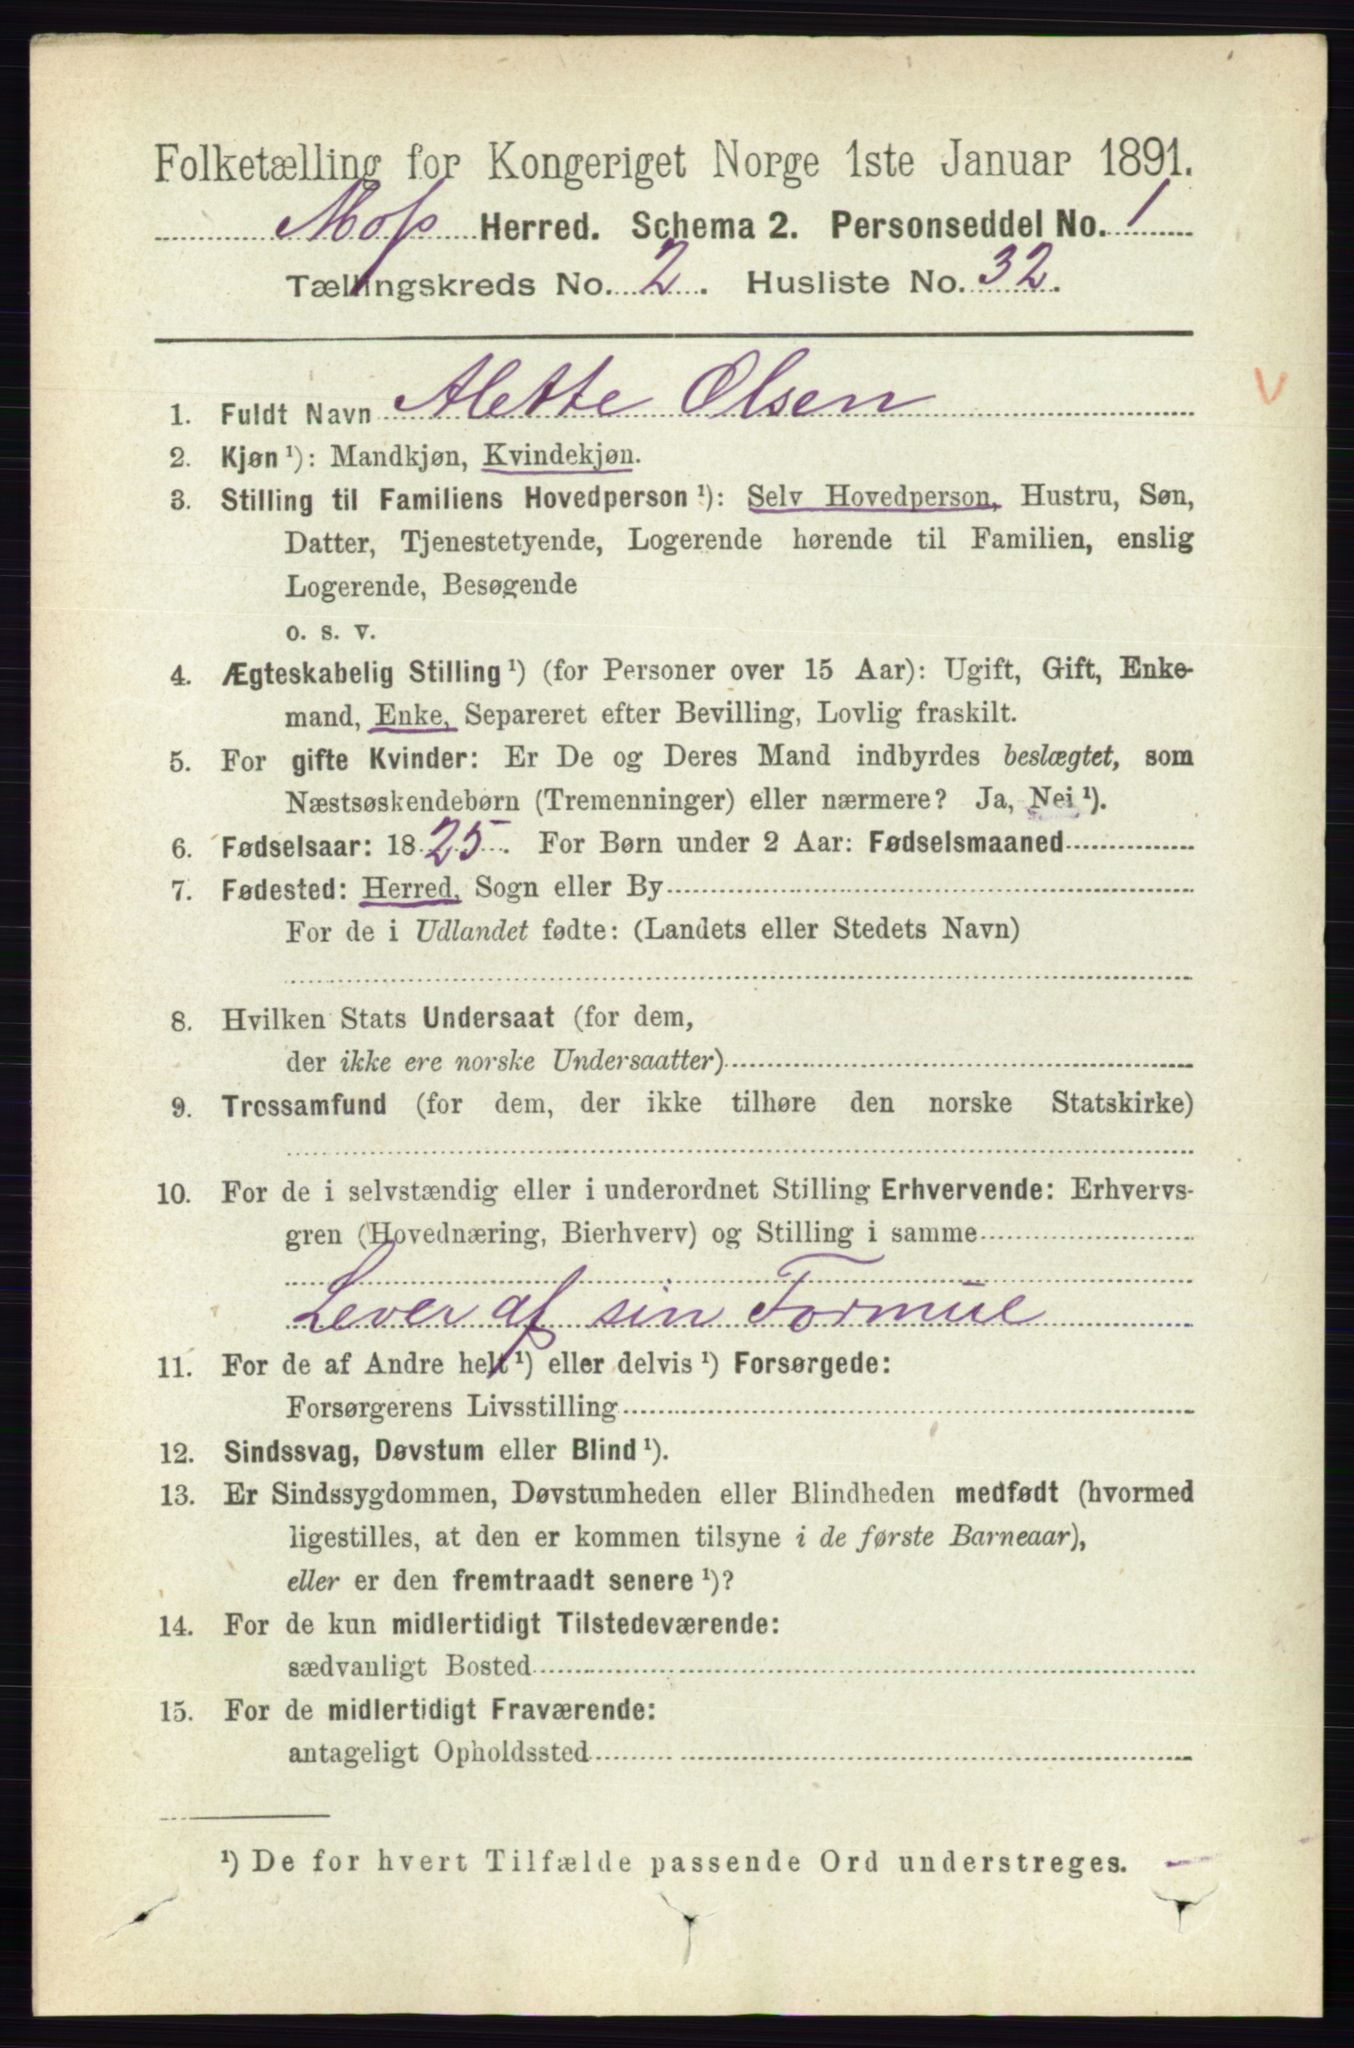 Folketælling for Kongeriget Norge 1ste Januar 1891.
Moss Herred. Schema 2. Personseddel No. 1
Tællingskreds No. 2. Husliste No. 32.
1. Fuldt Navn Alette Olsen
V
2. Kjøn¹): Mandkjøn, Kvindekjøn.
3. Stilling til Familiens Hovedperson¹): Selv Hovedperson, Hustru, Søn,
Datter, Tjenestetyende, Logerende hørende til Familien, enslig
Logerende, Besøgende
o. s. v.
4. Ægteskabelig Stilling¹) (for Personer over 15 Aar): Ugift, Gift, Enke-
mand, Enke, Separeret efter Bevilling, Lovlig fraskilt.
5. For gifte Kvinder: Er De og Deres Mand indbyrdes beslægtet, som
Næstsøskendebørn (Tremenninger) eller nærmere? Ja, Nei¹).
6. Fødselsaar: 1825. For Børn under 2 Aar: Fødselsmaaned
7. Fødested: Herred, Sogn eller By
For de i Udlandet fødte: (Landets eller Stedets Navn)
8. Hvilken Stats Undersaat (for dem,
der ikke ere norske Undersaatter)
9. Trossamfund (for dem, der ikke tilhøre den norske Statskirke)
10. For de i selvstændig eller i underordnet Stilling Erhvervende: Erhvervs-
gren (Hovednæring, Bierhverv) og Stilling i samme
Lever af sin Formue
11. For de af Andre helt¹) eller delvis¹) Forsørgede:
Forsørgerens Livsstilling
12. Sindssvag, Døvstum eller Blind¹).
13. Er Sindssygdommen, Døvstumheden eller Blindheden medfødt (hvormed
ligestilles, at den er kommen tilsyne i de første Barneaar),
eller er den fremtraadt senere¹)?
14. For de kun midlertidigt Tilstedeværende:
sædvanligt Bosted
15. For de midlertidigt Fraværende:
antageligt Opholdssted
¹) De for hvert Tilfælde passende Ord understreges.